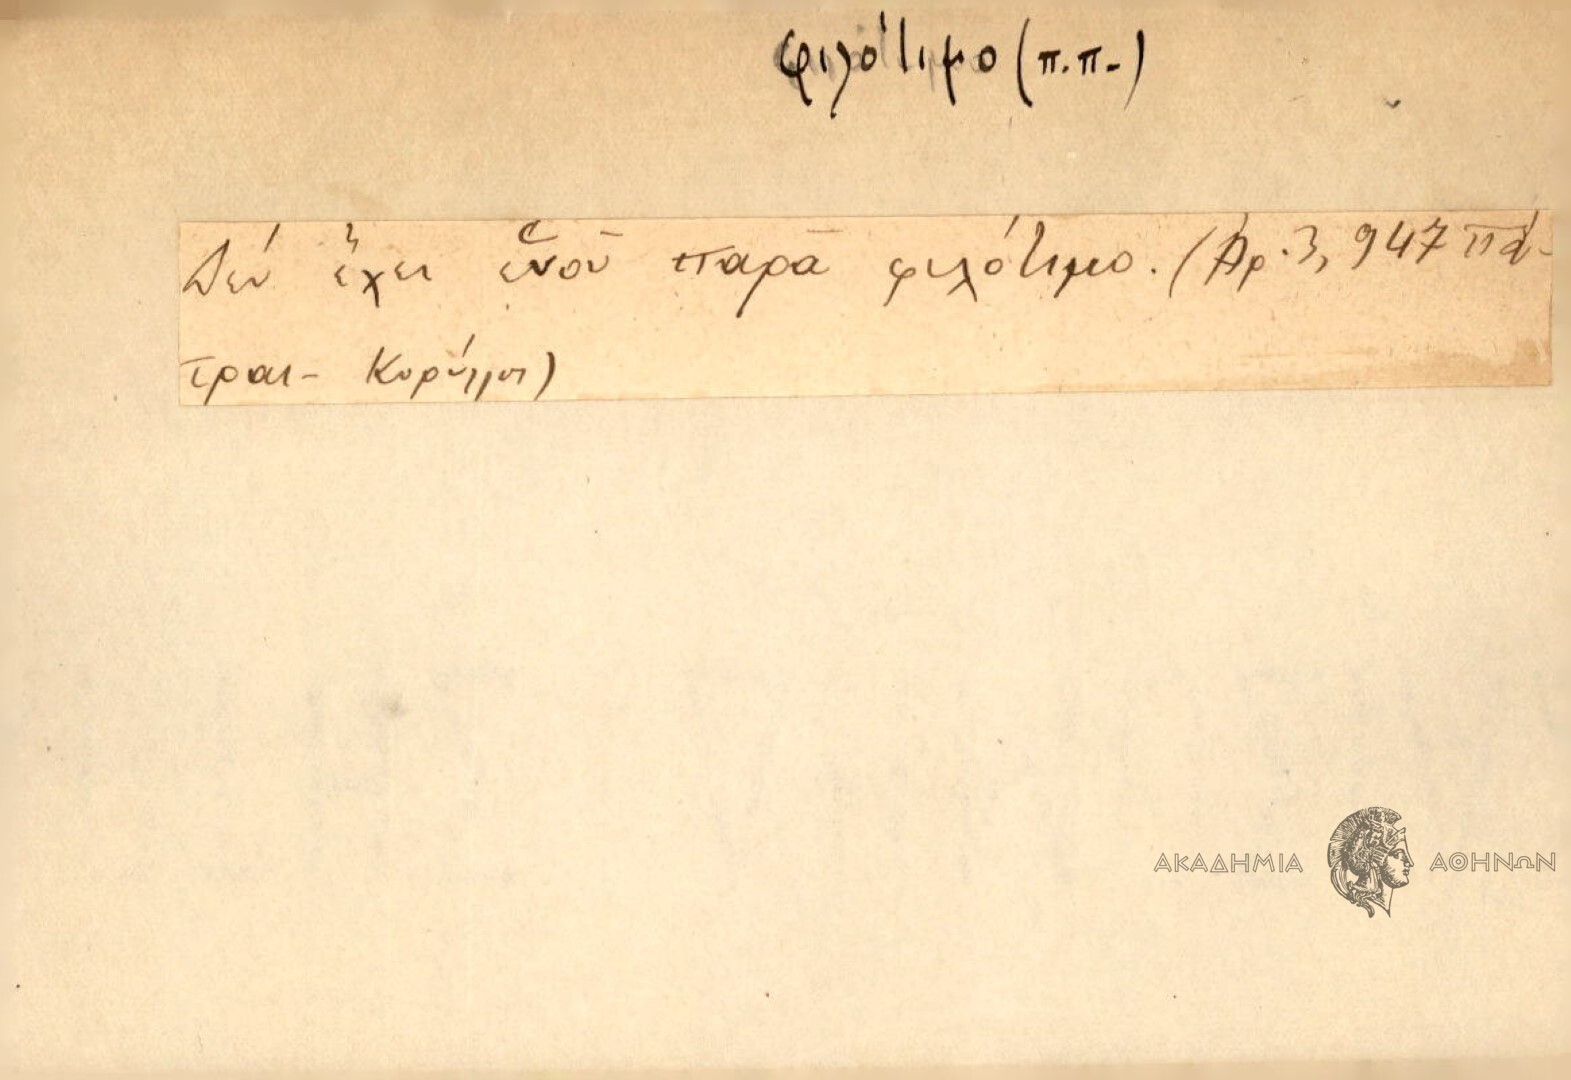 φιλότιμο (π.π.)
Δέν ἔχει ἑνοῦ παρᾶ φιλότιμο. (Ἀρ. 3, 947 Πά-
τραι - Κορύλλοι)
ΑΚΑΔΗΜΙΑ ΑΘΗΝΩΝ